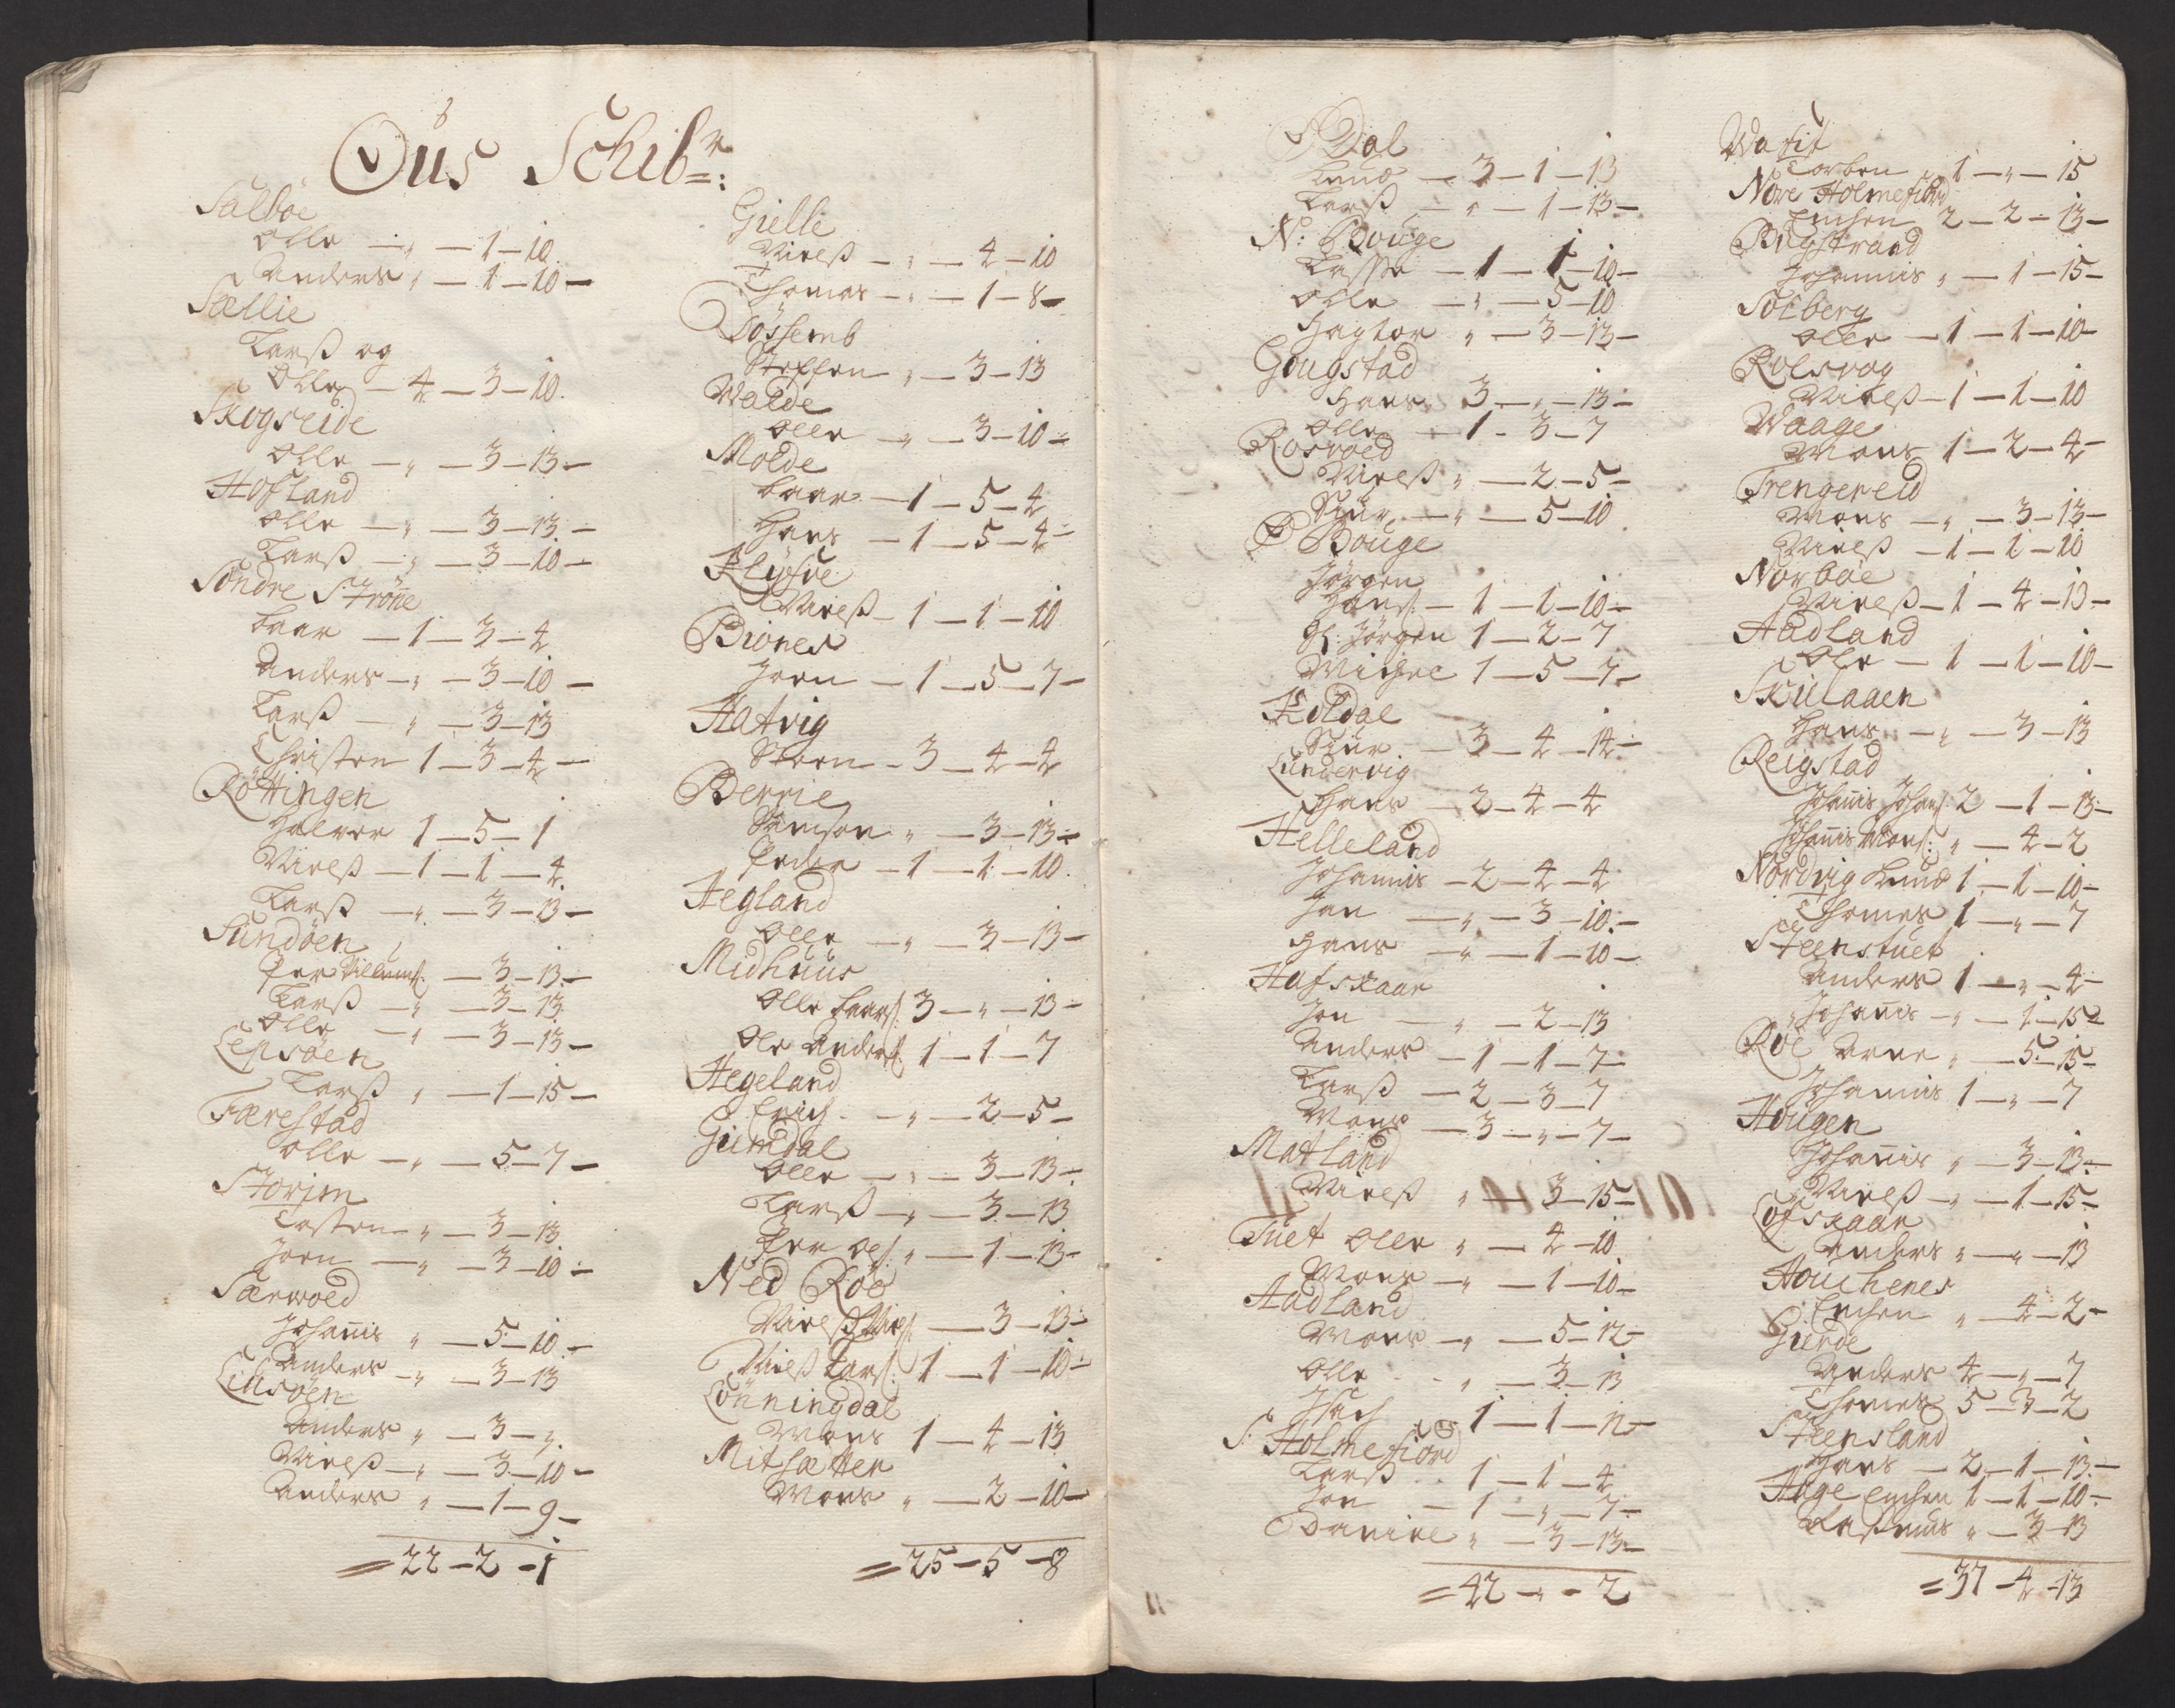 Ous Schibr:
Salbøe
Olle — " — 1 — 10
Anders " — 1 — 10 —
Sællie
Larß og
Olle — 4 — 3 — 10
Skogseide
Olle — " — 3 — 13 —
Hofland
Olle — " — 3 — 13 —
Larß — " — 3 — 10 —
Søndre Strøne
Baar — 1 — 3 — 4
Anders — " — 3 — 10 —
Larß — " — 3 — 13
Christen 1 — 3 — 4 —
Røttingen
Halvor 1 — 5 — 1
Nielß — 1 — 1 — 4
Larß — " — 3 — 13 —
Sundøen
Per Villumß: — 3 — 13 —
Larß — " — 3 — 13
Olle — " — 3 — 13 —
Lepsøen
Larß " — 1 — 15 —
Færestad
Olle — " — 5 — 7 —
Storim
Tosten — " — 3 — 13
Joen — " — 3 — 10 —
Særvold
Johannis " — 5 — 10 —
Anders — " — 3 — 13
Lepsøen
Anders " — 3 — 7
Nielß — " — 3 — 10 —
Anders " — 1 — 9 —
= 22 — 2 — 1
Gielle
Nielß — " — 4 — 10
Thomas — " — 1 — 8 —
Døssemb
Steffen " — 3 — 13
Walde
Olle — " — 3 — 10 —
Molde
Baar — 1 — 5 — 4
Hans — 1 — 5 — 4 —
Klyfve
Nielß — 1 — 1 — 10
Biones
Joen — 1 — 5 — 7 —
Hatvig
Steen — 3 — 4 — 4
Berrie
Simson " — 3 — 13 —
Peder — 1 — 1 — 10
Hegland
Olle — " — 3 — 13 —
Midhuus
Olle Baarß: 3 — " — 13 —
Ole Anderß: 1 — 1 — 7
Hegeland
Erich — " — 2 — 5 —
Giemdal
Olle — " — 3 — 13 —
Larß — " — 3 — 13
Per Olß: " — 1 — 13 —
Ned Røe
Nielß Nielß: — 3 — 13 —
Nielß Larß: 1 — 1 — 10 —
Lønningdal
Mons 1 — 4 — 13
Mitsætter
Mons " — 2 — 10 —
= 25 — 5 — 8
Dal
Knud — 3 — 1 — 13
Larß — " — 1 — 13 —
N: Bouge
Lasse — 1 — 1 — 10 —
Olle — " — 5 — 10
Hagtor " — 3 — 13 —
Gougstad
Hans 3 — " — 13 —
Olle — 1 — 3 — 7
Rosvold
Nielß " — 2 — 5 —
Siur — " — 5 — 10
Bouge
Jørgen
Hanß: — 1 — 1 — 10 —
Jørgen 1 — 2 — 7
Michel 1 — 5 — 7 —
Koldal
Siur — 3 — 4 — 14 —
Lundervig
Hans — 2 — 4 — 4
Helleland
Johannis — 2 — 4 — 4
Jon — " — 3 — 10 —
Hans — " — 1 — 10 —
Hafskaar
Jon — " — 2 — 13
Anders — 1 — 1 — 7 —
Larß — 2 — 3 — 7
Mons — 3 — " — 7 —
Matland
Nielß " — 3 — 15 —
Tuet Olle " — 4 — 10
Mons — " — 1 — 10 —
Hadland
Mons — " — 5 — 12 —
Olle — " — 3 — 13
Isach 1 — 1 — 12 —
S: Holmefiord
Larß — 1 — 1 — 4
Jon — 1 — " — 7 —
Daniel " — 3 — 13 —
= 42 — " — 2
Torben " 1 — " — 15
Nore Holmefiord
Enchen 2 — 2 — 13 —
Bugstrand
Johannis " — 1 — 15 —
Solberg
Olle — 1 — 1 — 10 —
Rolsvog
Nielß — 1 — 1 — 10
Waage
Mons 1 — 2 — 4 —
Trengereid
Mons — " — 3 — 13 —
Nielß — 1 — 1 — 10
Norbøe
Nielß — 1 — 4 — 13 —
Hadland
Ole — 1 — 1 — 10 —
Skulaaen
Hans — " — 3 — 13
Reigstad
Johanis Johanß: 2 — 1 — 13 —
Johanis Monß: " — 4 — 2
Nordvig Knud 1 — 1 — 10 —
Thomes 1 — " — 7
Steenstuet
Anders 1 — " — 4 —
Johanis — " — 1 — 15 —
Røe Arne " — 5 — 15 —
Johannis 1 — " — 7
Hougen
Johannis " — 3 — 13 —
Nielß — " — 1 — 15 —
Lofskaar
Anders " — " — 13
Houchenes
Enchen " — 4 — 2 —
Gierde
Anders 4 — " — 7
Thomes 5 — 3 — 2
Steensland
Hans — 2 — 1 — 13 —
Hage Enchen 1 — 1 — 10 —
Rasmus " — 3 — 13
= 37 — 4 — 13